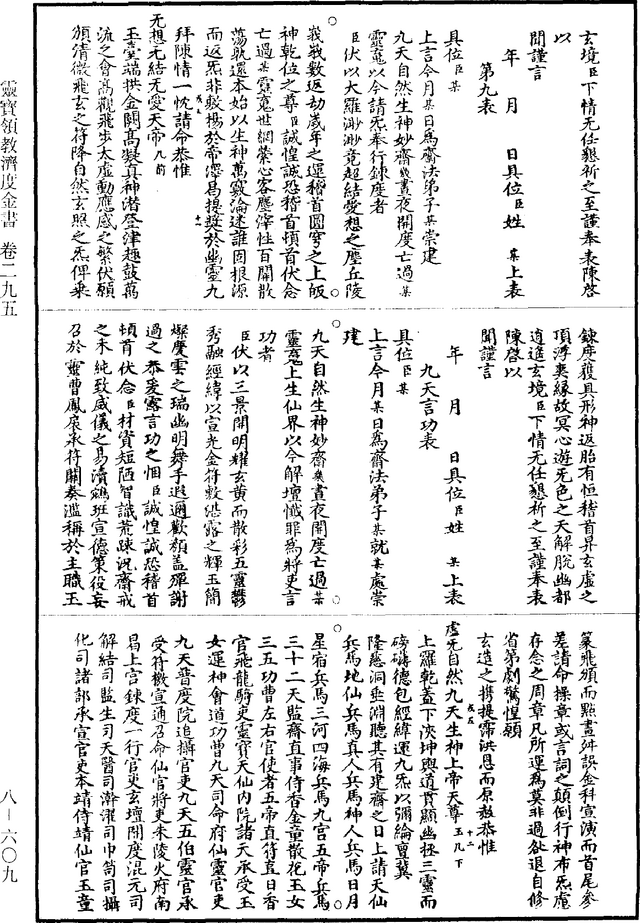 玄境臣下情无任懇祈之至謹奉表陳啓
以
聞謹言
年　月　日具位臣姓　某上表
第九表
具位臣某
上言今月某日為齋法弟子某崇建
九天自然生神妙齋幾晝夜開度亡過某
靈寬以今請炁奉行鍊度者
臣伏以大羅渺渺竟超結愛想之塵丘陵
峩峩數返劫歲年之運稽首圓穹之上皈
神乾位之尊臣誠惶誠恐稽首頓首伏念
亡過某靈寬世網縈心客塵滓性百關散
蕩孰還本始以生神萬竅淪迷誰固根源
而返炁非較揚於帝澤曷提奬於幽靈九
拜陳情一忱請命恭惟
无想无結无愛天帝九前
玉臺端拱金闕高凝真神潜登津趣鼓萬
流之會高觀飛步太虛動應感之繁伏願
頒清微飛玄之符降自然玄照之炁俾來
鍊度獲具形神返胎有恒稽首昇玄虛之
頂溥夷緣故冥心遊无色之天解脫幽都
逍遥玄境臣下情无任懇祈之至謹奉表
陳啓以
聞謹言
年　月　日具位臣姓　某上表
九天言功表
具位臣某
上言今月某日為齋法弟子某就某處崇
建
九天自然生神妙齋幾晝夜開度亡過某
靈寬上生仙界以今解壇懺罪為將吏言
功者
臣伏以三景開明耀玄黄而散彩五靈鬱
秀融經緯以宣光金符敷浥露之輝玉簡
燦慶雲之瑞幽明舞手遐邇歡顏盖殫謝
過之恭爰露言功之悃臣誠惶誠恐稽首
頓首伏念臣材資短陋智識荒踈況齋戒
之未純致威儀之易瀆鵷班宣德策役妄
召於靈曹鳳扆承符關奏濫稱於主職玉
篆飛頒而點畫舛誤金科宣演而首尾參
差請命操章或言詞之顛倒行神布炁虛
存念之周章凡所運為莫非過欲退自修
省第劇驚惶顧
玄造之携提霈洪恩而原赦恭惟
虛无自然九天生神上帝天尊玉几下
上羅乾蓋下浹坤輿道貫顯幽拯三靈而
磅礴德包經緯運九炁以彌綸亶冀
隆慈洞垂淵聽其有建齋之日上請天仙
兵馬地仙兵馬真人兵馬神人兵馬日月
星宿兵馬三河四海兵馬九宫五帝兵馬
三十二天監齋直事侍香金童散花玉女
三五功曹左右官使者五帝直符直日香
官飛龍騎吏靈寶天仙内院諸天承受玉
女運神會道功曹九天司命府仙靈官吏
九天普度院追攝官吏九天五伯靈官承
受符檄宣通召命仙官將吏朱陵火府南
昌上宫鍊度一行官吏玄壇開度混元司
解結司監生司天醫司澣濯司巾笥司攝
化司諸部承宣官吏本靖侍靖仙官玉童
靈寶領教濟度金書　卷二九五
八—六〇九